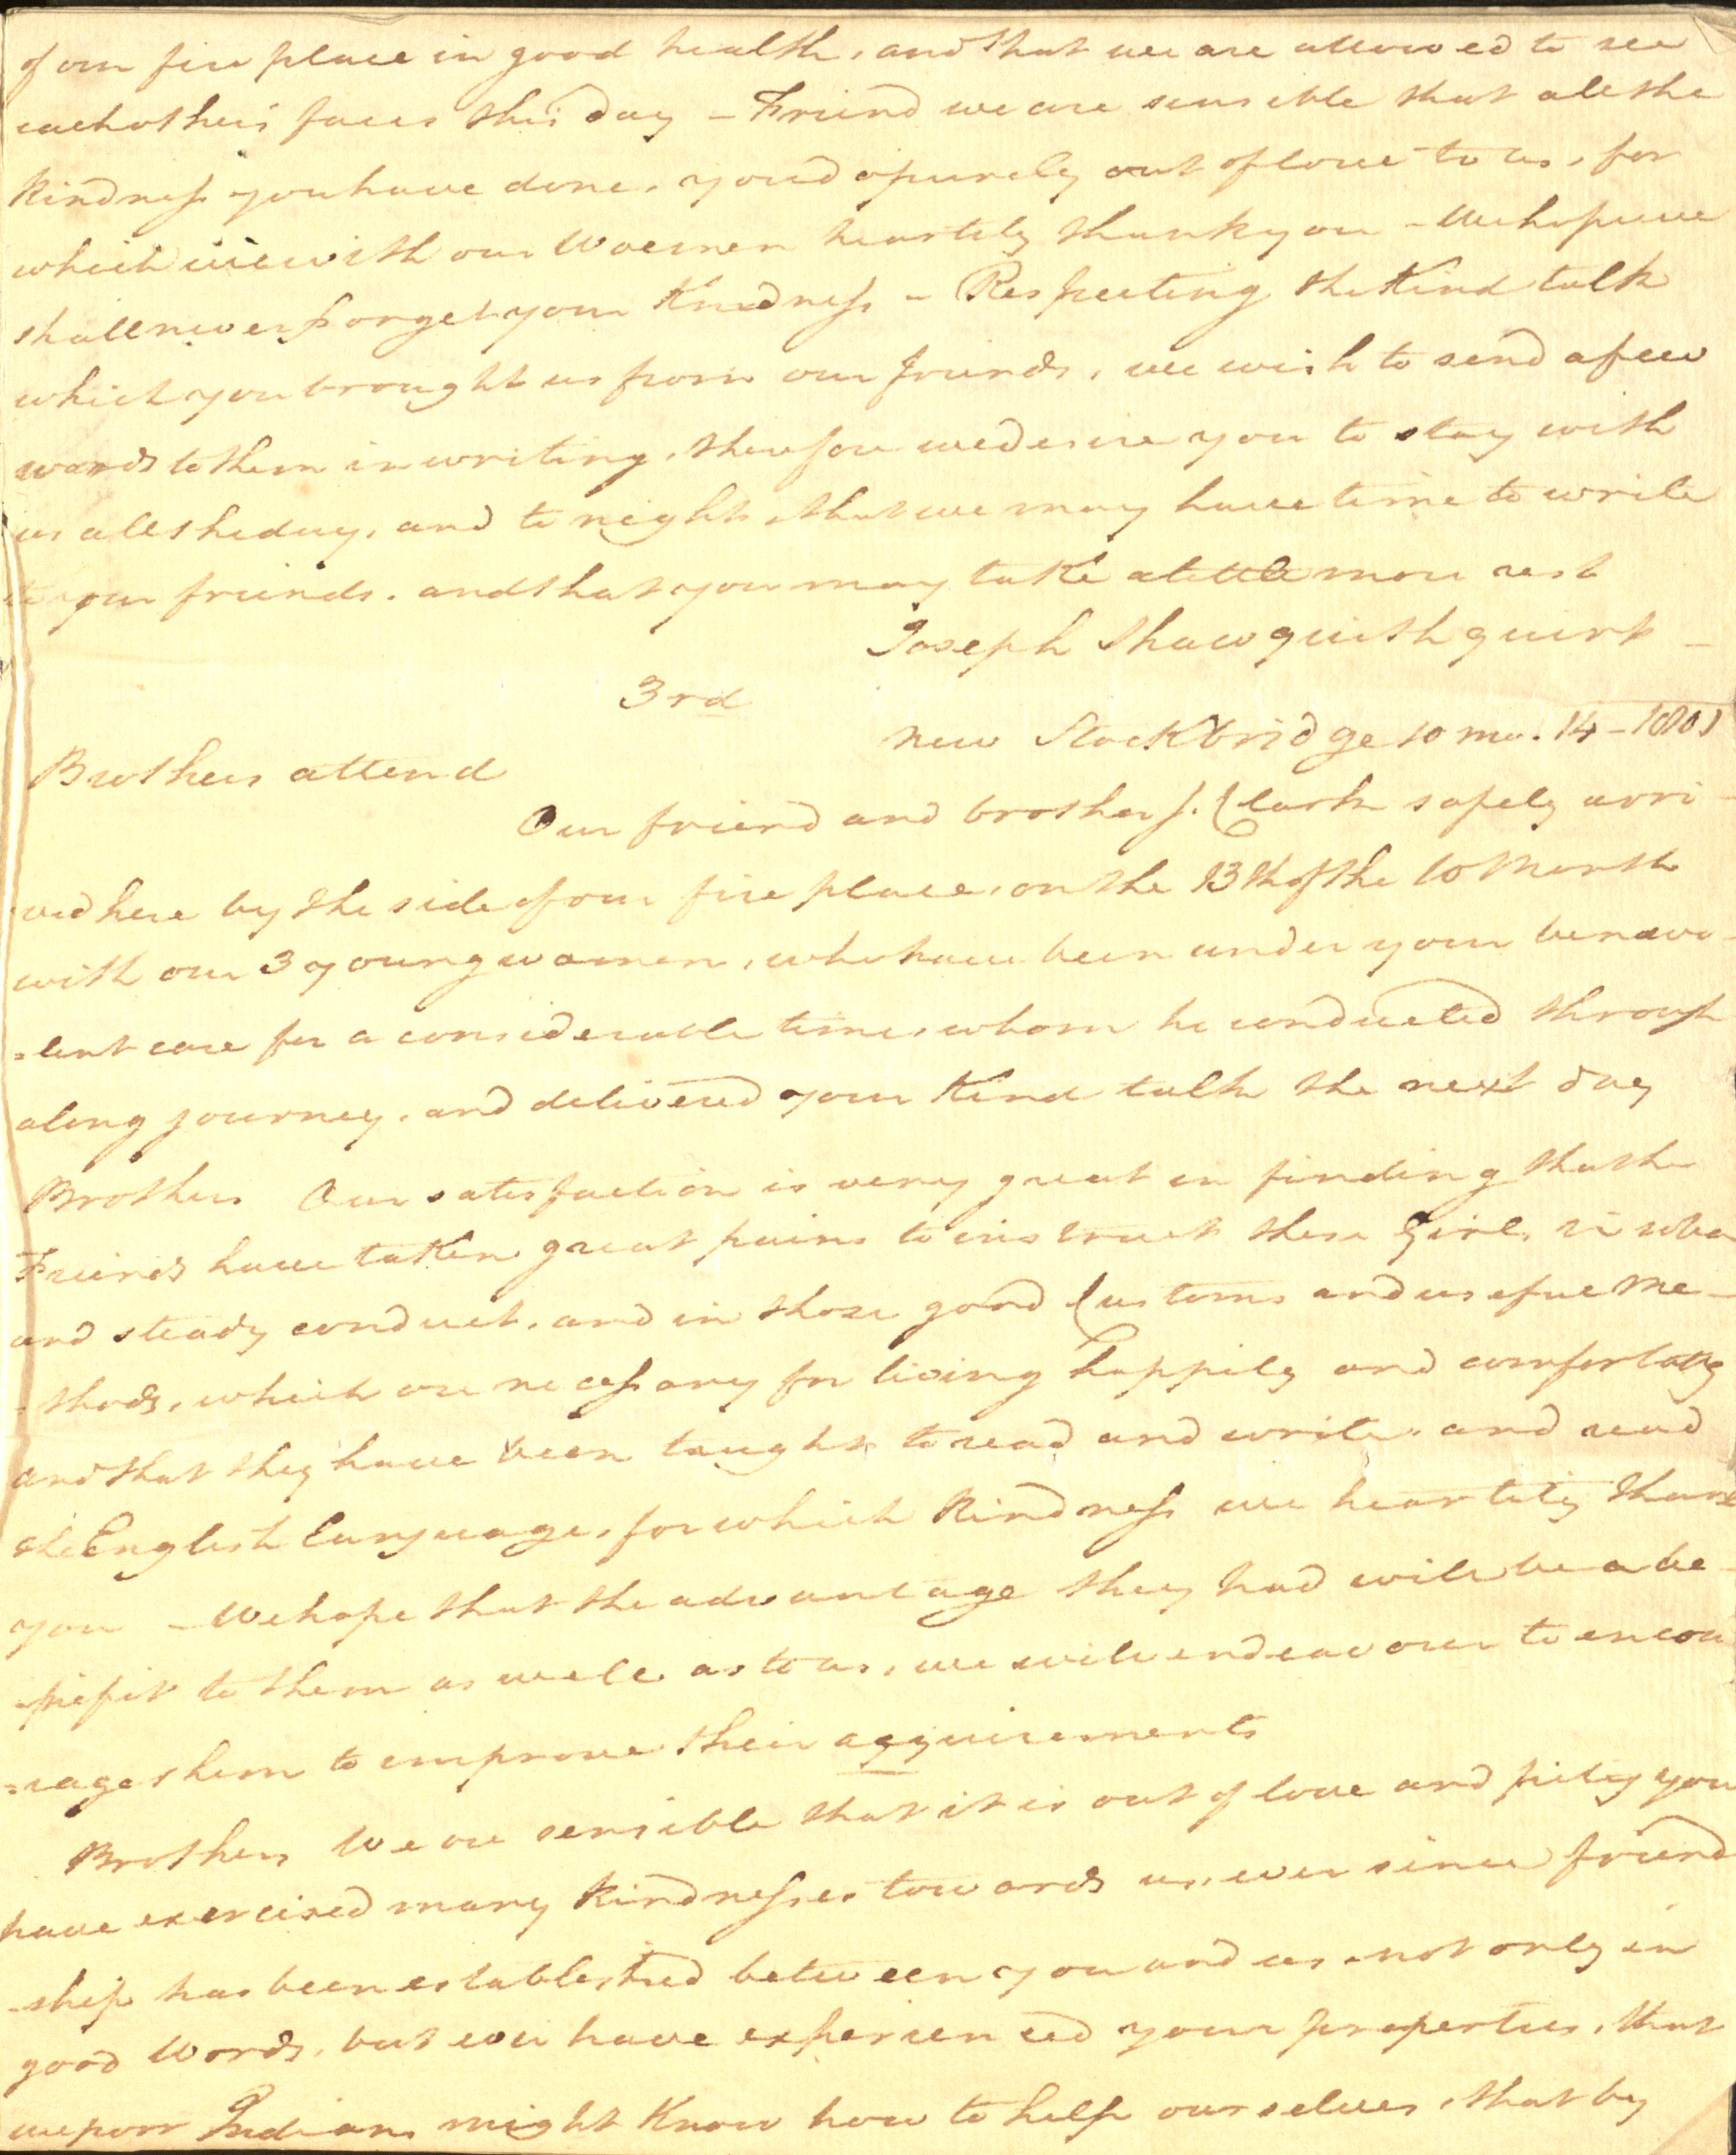 of our fire place in good health, and that we are allowed to see
eachothers faces this day – Friend we are sensible that all the
Kindness you have done, you do purely out of love to us, for
which we with our Woemen heartily thank you – We hope we
shall never forget your Kindness – Respecting the Kind talk
which you brought us from our friends, we wish to send a few
words to them in writing, therefore we desire you to stay with
us all the day, and to night, that we may have time to write
to our friends. and that you may take a little more rest
Joseph Shawquithquirk –
3rd
New Stockbridge 10 mo. 14 – 1801
Brothers attend
Our friend and brother J. Clark safely arri-
ved here by the side of our fire place, on the 13th of the 10 Month
with our 3 young women, who have been under your benevo-
-lent care for a considerable time, whom he conducted through
a long journey, and delivered your Kind talk the next day
Brothers Our satisfaction is very great in finding that the
Friends have taken great pains to instruct these Girls, in
and steady conduct, and in those good Customs and useful Me-
-thods, which are necessary for living happily and comfortably
and that they have been taught to read and write, and read
the English Language, for which Kindness we heartily thank
you – We hope that the advantage they had will be a be-
-nefit to them as well as to us, we will endeavour to encou
-rage them to improve their acquirements
Brothers We are sensible that it is out of love and pity you
have exercised many Kindnesses towards us, ever since friend
-ship has been established between you and us, not only in
good Words, but we have experienced your properties, that
we poor Indians might Know how to help ourselves, that by